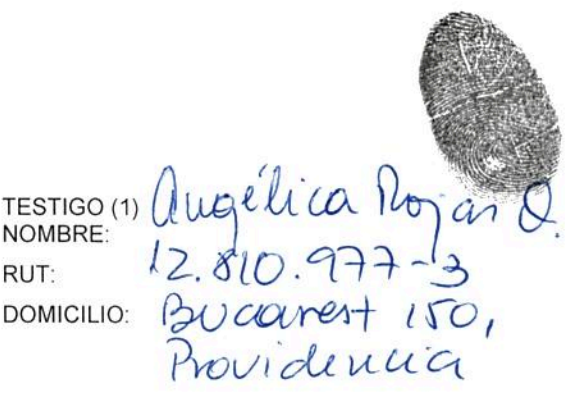 TESTIGO (1) Angélica Rojas O.
NOMBRE:
RUT: 12.810.977-3
DOMICILIO: Bucarest 150,
Providencia